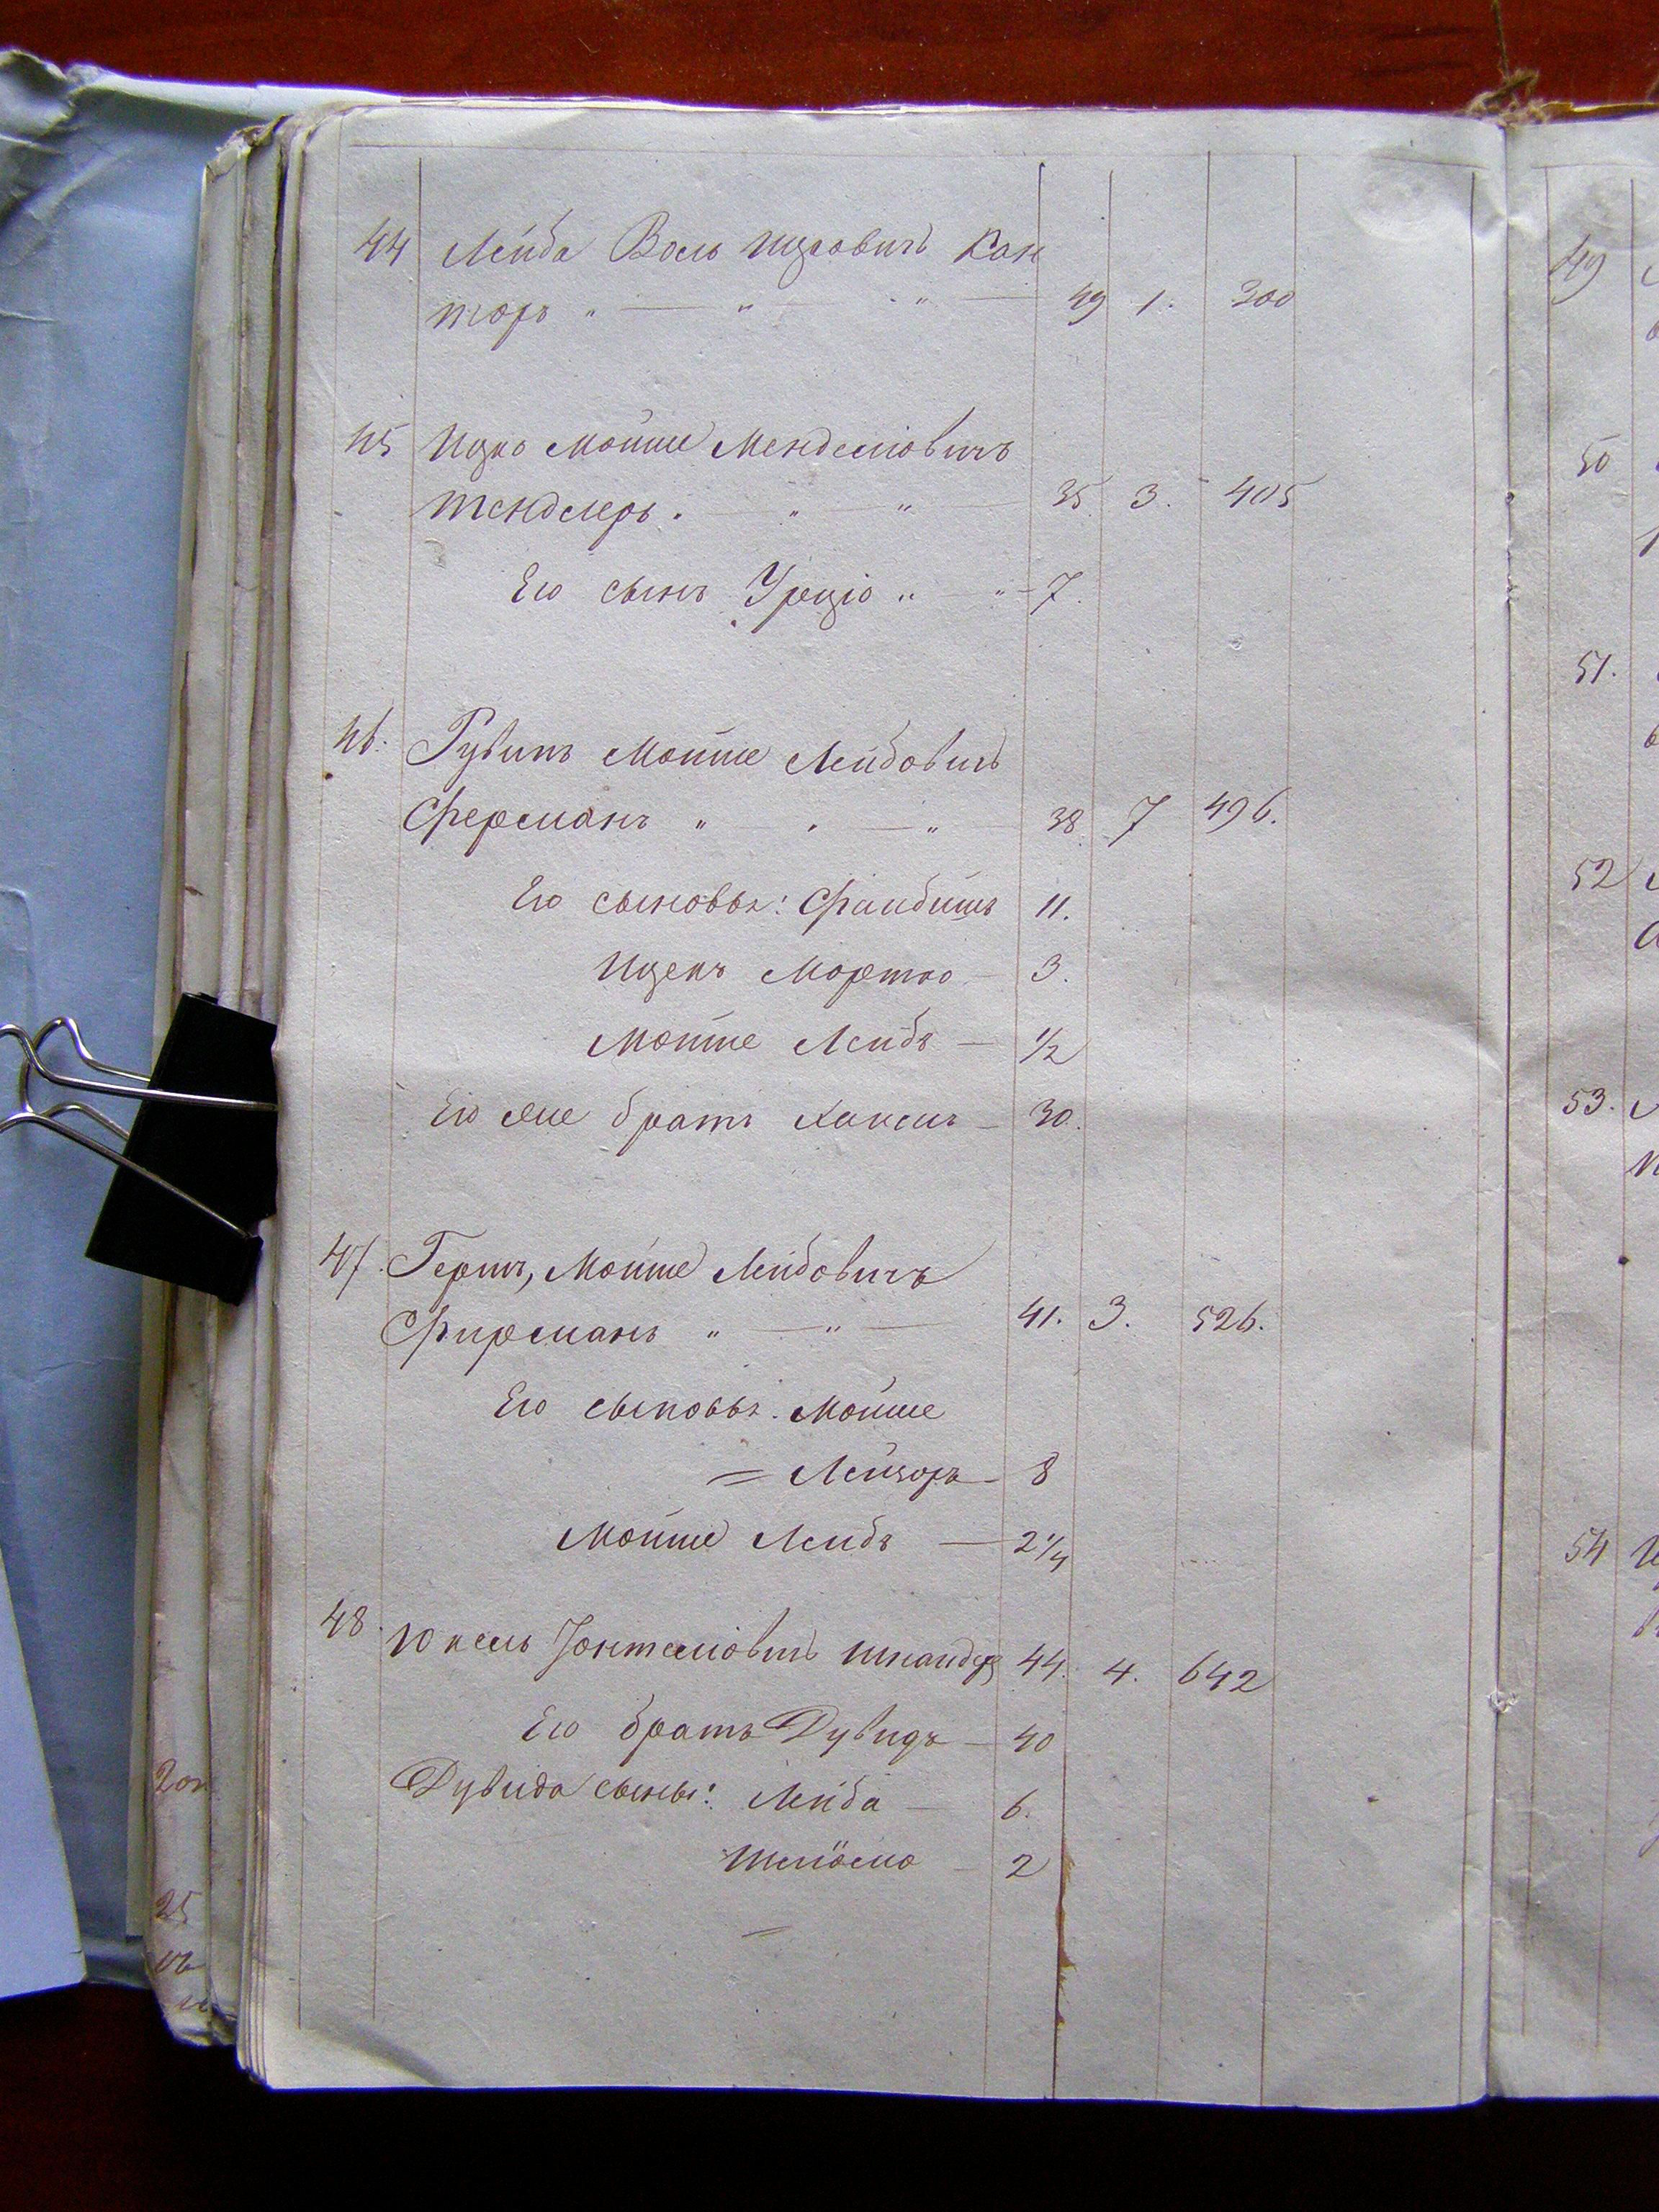 44 Лейба Воль Ицковичъ Кан
торъ " — " — " — 49 1. 300
45 Ицко Мойше Менделіовичъ
Тендлеръ. — " — " 35. 3. 405
Его сынъ Урцio " — " — 7.
46. Рувинъ Мойше Лейбовичъ
Ферманъ " — " — " 38. 7 496.
Его сыновья: Файбишъ 11.
Ицекъ Мортко — 3.
Мойше Лейбъ — 1/2
Его же братъ Хаксиль — 30.
47. Гершъ, Мойше Лейбовичъ
Фирманъ " — " — 41. 3. 526.
Его сыновья. Мойше
= Лейзоръ — 8
Мойше Лейбъ — 2 1/4
48. Юкель Іонтеліовичъ 44. 4. 642
Его братъ Дувидъ — 40
Дувида сыны: Лейба — 6.
Шліома — 2
49
50
51.
52
53.
54
25